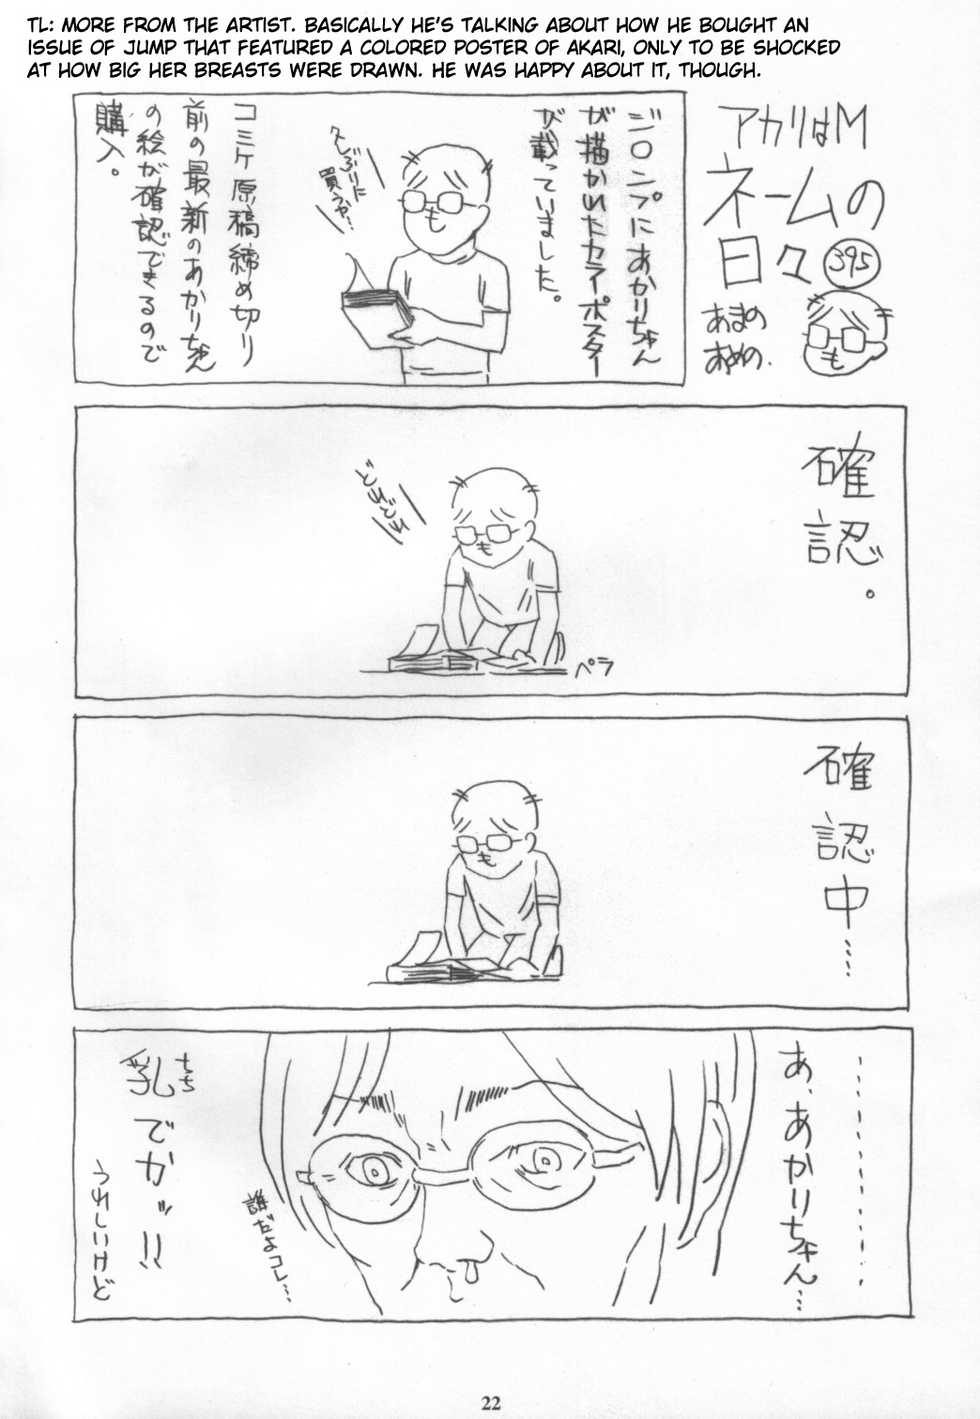 TL: MORE FROM THE ARTIST. BASICALLY HE'S TALKING ABOUT HOW HE BOUGHT AN
ISSUE OF JUMP THAT FEATURED A COLORED POSTER OF AKARI, ONLY TO BE SHOCKED
AT HOW BIG HER BREASTS WERE DRAWN. HE WAS HAPPY ABOUT IT, THOUGH.
アカリはM
ネームの
日々
395
あまの
あめの.
ジャンプにあかりちゃん
が描かれたカラーポスター
が載っていました。
久しぶりに
買うや…
コミケ原稿締め切り
前の最新のあかりちゃん
の絵が確認できるので
購入。
確認。
ペラ
確認中……
あ、あかりちゃん…
誰だよコレ…
乳でかッ!!
ちち
うれしいけど
22